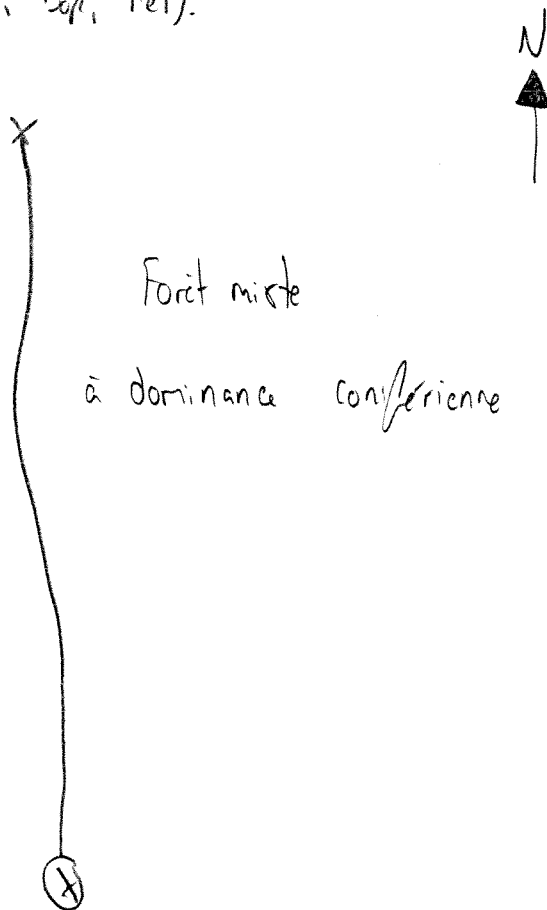 N
Forêt mixte
à dominance coniférienne